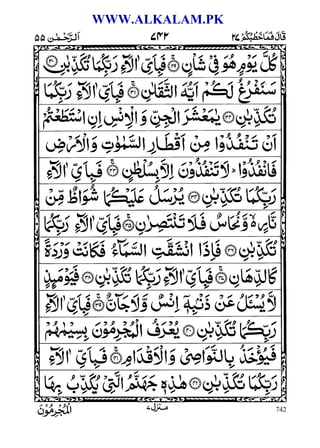 WWW.ALKALAM.PK
اَلرَّحْمٰن ٥٥
٧٤٢
قَالَ فَمَا خَطْبُكُمْ ٢٧
كُلَّ يَوْمٍ هُوَ فِيْ شَاْنٍ ۚ﴿۲۹﴾ فَبِاَيِّ اٰلَآءِ رَبِّكُمَا تُكَذِّبٰنِ ﴿۳۰﴾
سَنَفْرُغُ لَكُمْ اَيُّهَ الثَّقَلٰنِ ۚ﴿۳۱﴾ فَبِاَيِّ اٰلَآءِ رَبِّكُمَا
تُكَذِّبٰنِ ﴿۳۲﴾ يٰمَعْشَرَ الْجِنِّ وَ الْاِنْسِ اِنِ اسْتَطَعْتُمْ
اَنْ تَنْفُذُوْا مِنْ اَقْطَارِ السَّمٰوٰتِ وَ الْاَرْضِ
فَانْفُذُوْا ؕ لَا تَنْفُذُوْنَ اِلَّا بِسُلْطٰنٍ ۚ﴿۳۳﴾ فَبِاَيِّ اٰلَآءِ
رَبِّكُمَا تُكَذِّبٰنِ ﴿۳۴﴾ يُرْسَلُ عَلَيْكُمَا شُوَاظٌ مِّنْ
نَّارٍ ۙ۬ وَّ نُحَاسٌ فَلَا تَنْتَصِرٰنِ ۚ﴿۳۵﴾ فَبِاَيِّ اٰلَآءِ رَبِّكُمَا
تُكَذِّبٰنِ ﴿۳۶﴾ فَاِذَا انْشَقَّتِ السَّمَآءُ فَكَانَتْ وَرْدَةً
كَالدِّهَانِ ۚ﴿۳۷﴾ فَبِاَيِّ اٰلَآءِ رَبِّكُمَا تُكَذِّبٰنِ ﴿۳۸﴾ فَيَوْمَئِذٍ
لَّا يُسْـَٔلُ عَنْ ذَنْۢبِهٖۤ اِنْسٌ وَّ لَا جَآنٌّ ۚ﴿۳۹﴾ فَبِاَيِّ اٰلَآءِ
رَبِّكُمَا تُكَذِّبٰنِ ﴿۴۰﴾ يُعْرَفُ الْمُجْرِمُوْنَ بِسِيْمٰهُمْ
فَيُؤْخَذُ بِالنَّوَاصِيْ وَ الْاَقْدَامِ ۚ﴿۴۱﴾ فَبِاَيِّ اٰلَآءِ
رَبِّكُمَا تُكَذِّبٰنِ ﴿۴۲﴾ هٰذِهٖ جَهَنَّمُ الَّتِيْ يُكَذِّبُ بِهَا
الْمُجْرِمُوْنَ
منزل ٧
742